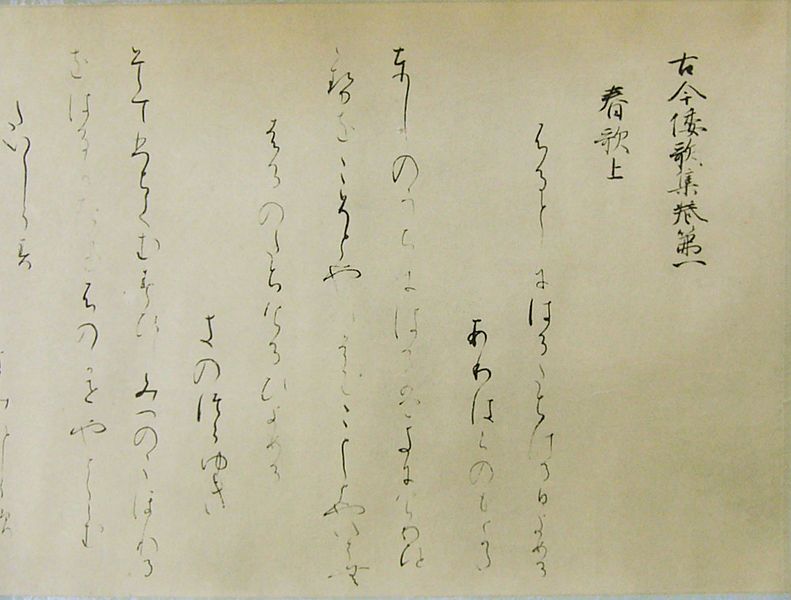 古今倭歌集巻第一
春歌上
ふるとしにはるたちける日よめる
ありはらのもとかた
としのうちにはるはきにけりひとゝせ
をこそとやいはむことしとやいはむ
はるのたちけるひよめる
きのつらゆき
そてひちてむすひしみつのこほれる
をはるたつけふのかせやとくらむ
たいしらす